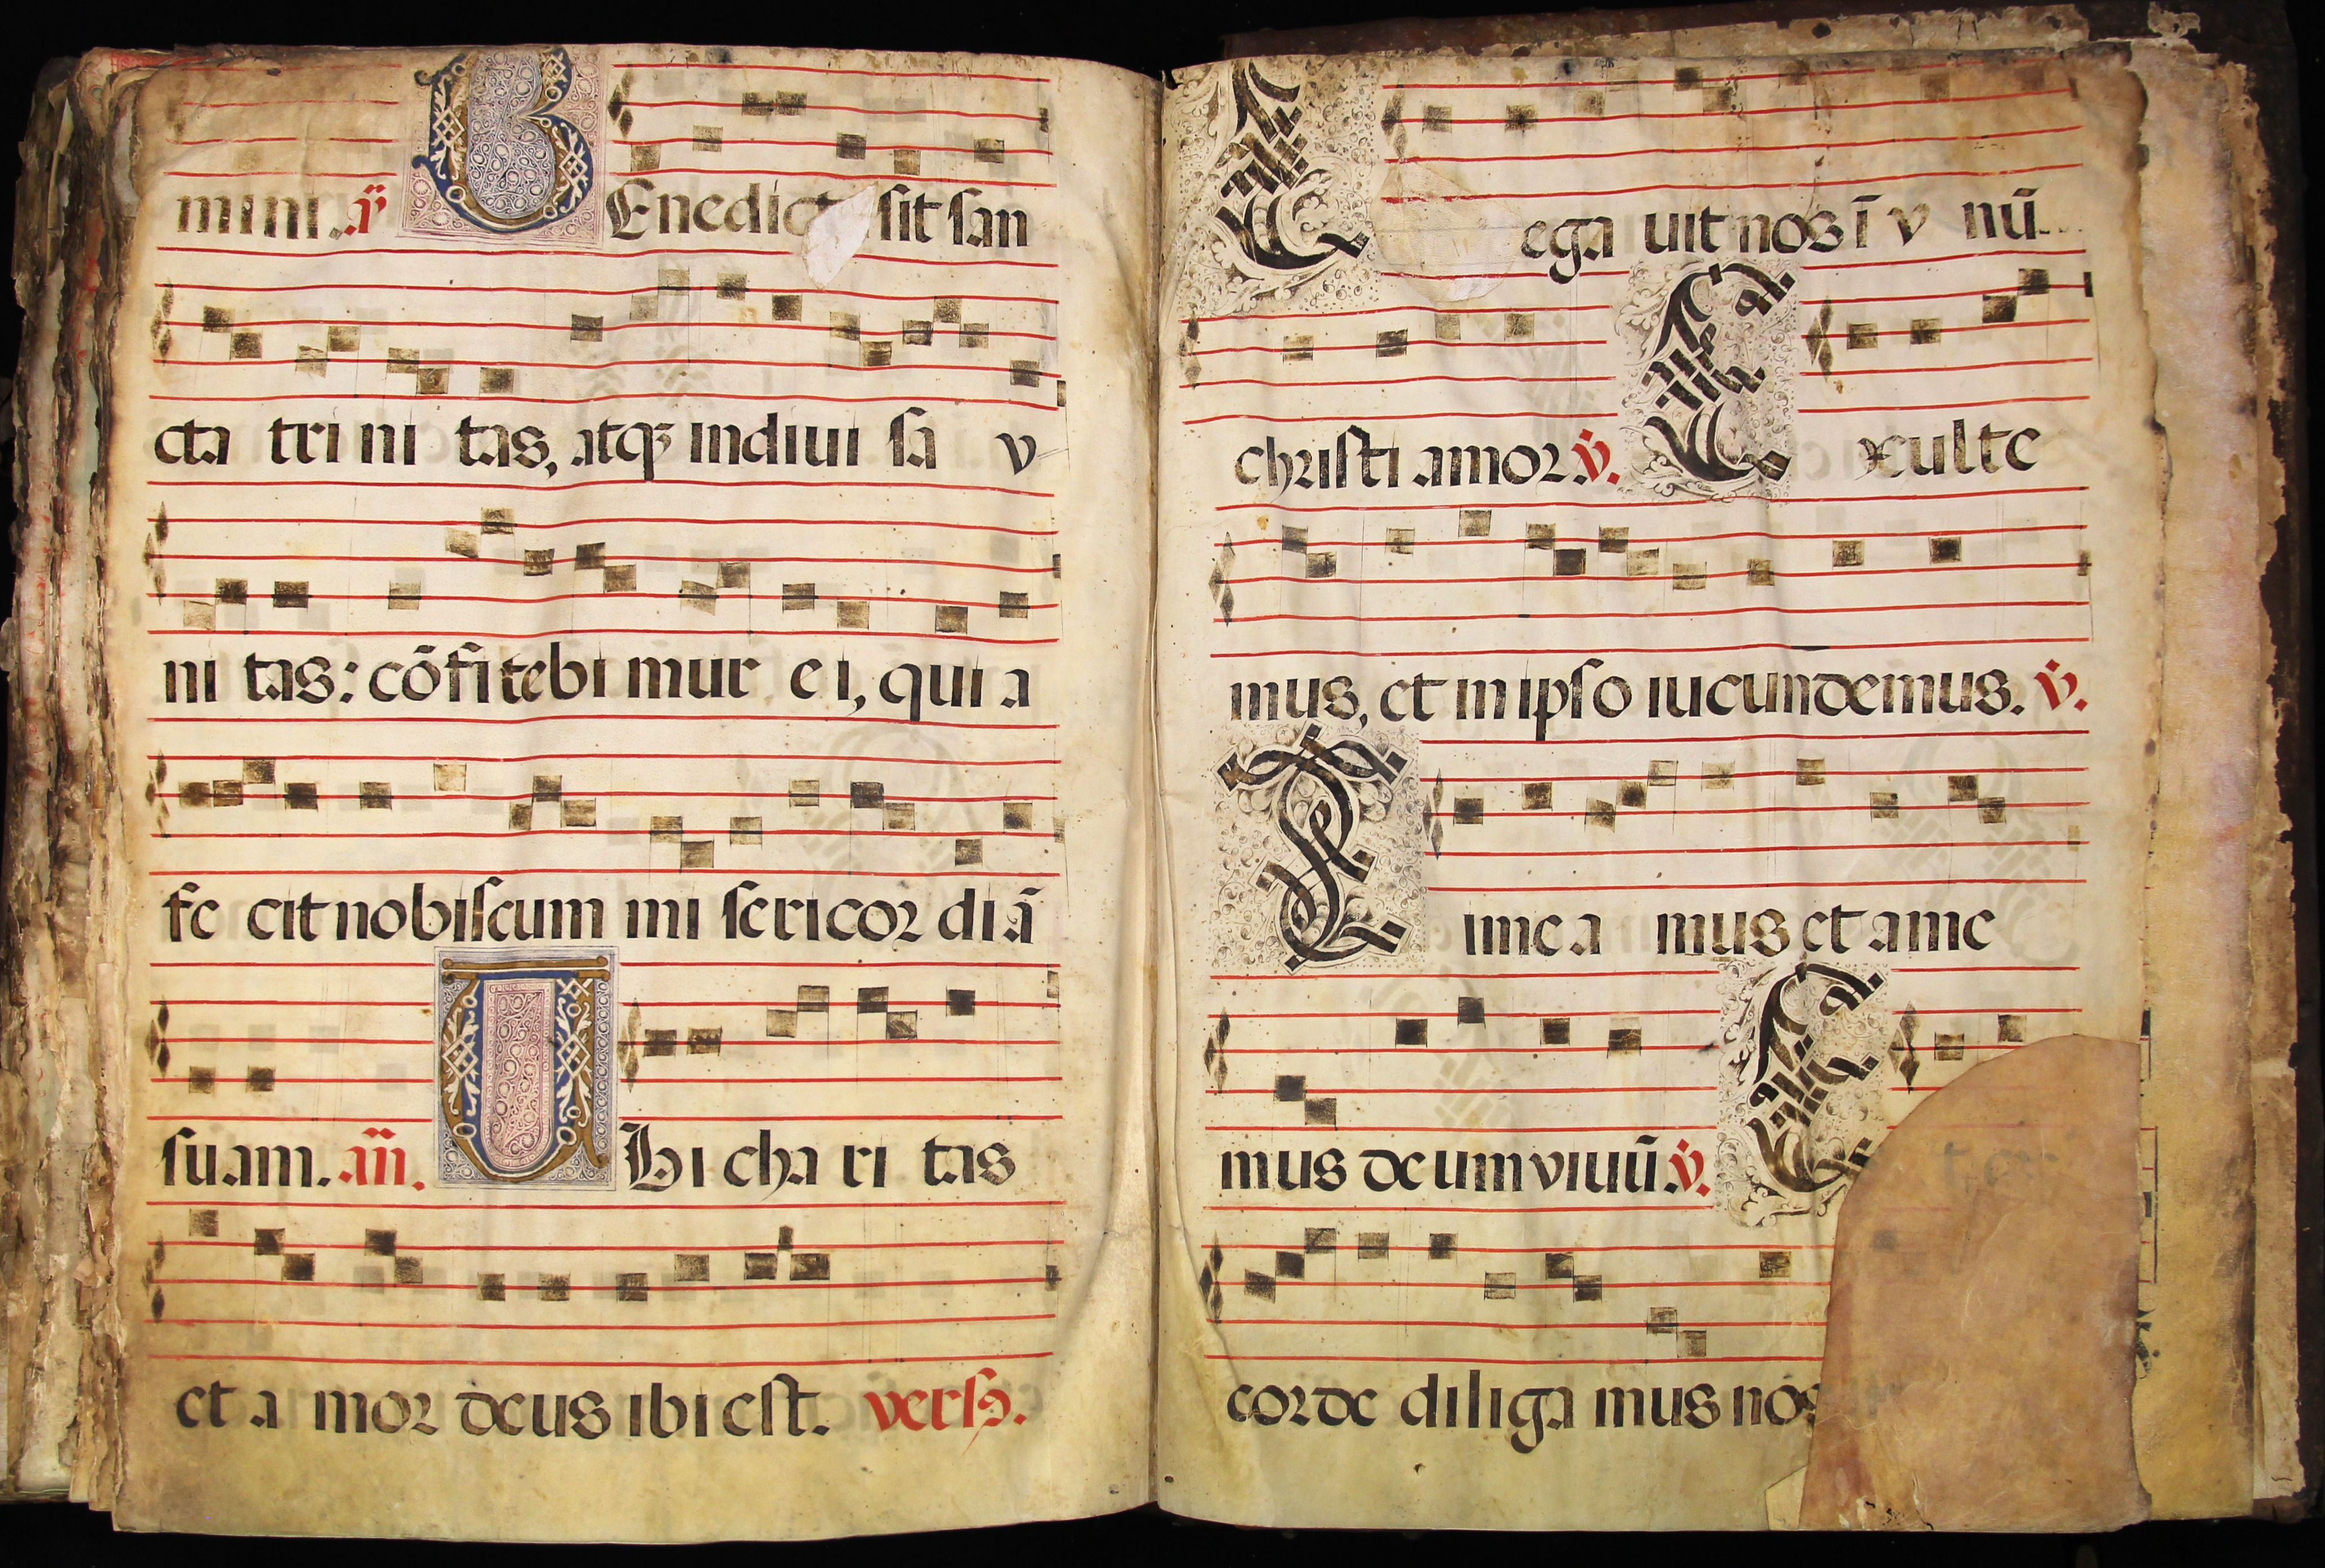 mini. v̄
BEnedict sit san
cta tri ni tas, atqꝫ indiui sa v
ni tas: cōfitebi mur e i, qui a
fe cit nobiscum mi sericor diā
suam. an̄. Ubi cha ri tas
et a mor deus ibi est. vers.
C ega uit nos ī v nū
christi amor v̇. E xulte
mus, et in ipso iucundemus. v̇.
T ime a mus et ame
mus deum viuū. v̇. E t ex
corde diliga mus nos